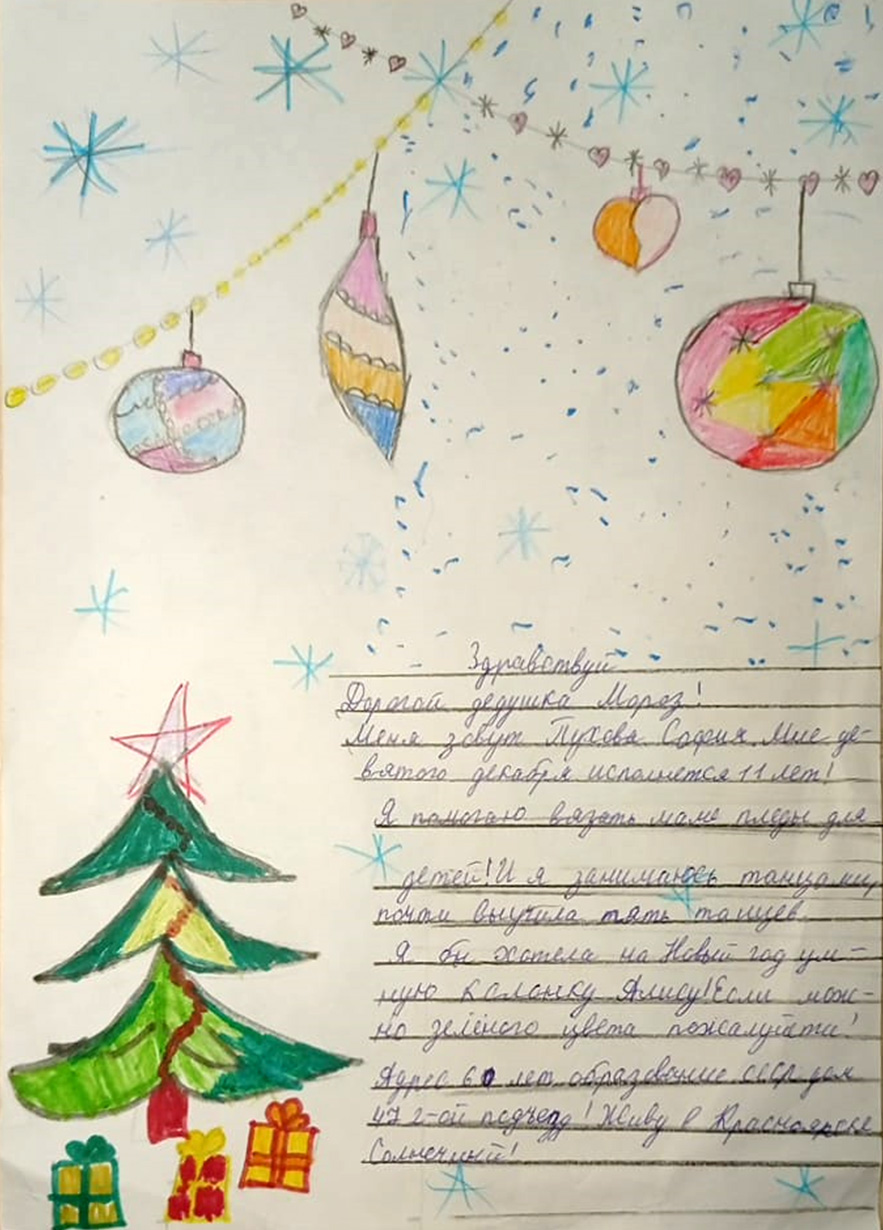 Здравствуй
Дорогой дедушка Мороз!
Меня зовут Пухова София. Мне де-
вятого декабря исполнется 11 лет!
Я помогаю вязать маме пледы для
детей! И я занимаюсь танцами,
почти выучила пять танцев.
Я бы хотела на Новый год ум-
ную калонку Алису! Если мож-
но зелёного цвета пожалуйста!
Адрес 60 лет образование СССР дом
47 2-ой подъезд! Живу в Красноярске
Солнечный!